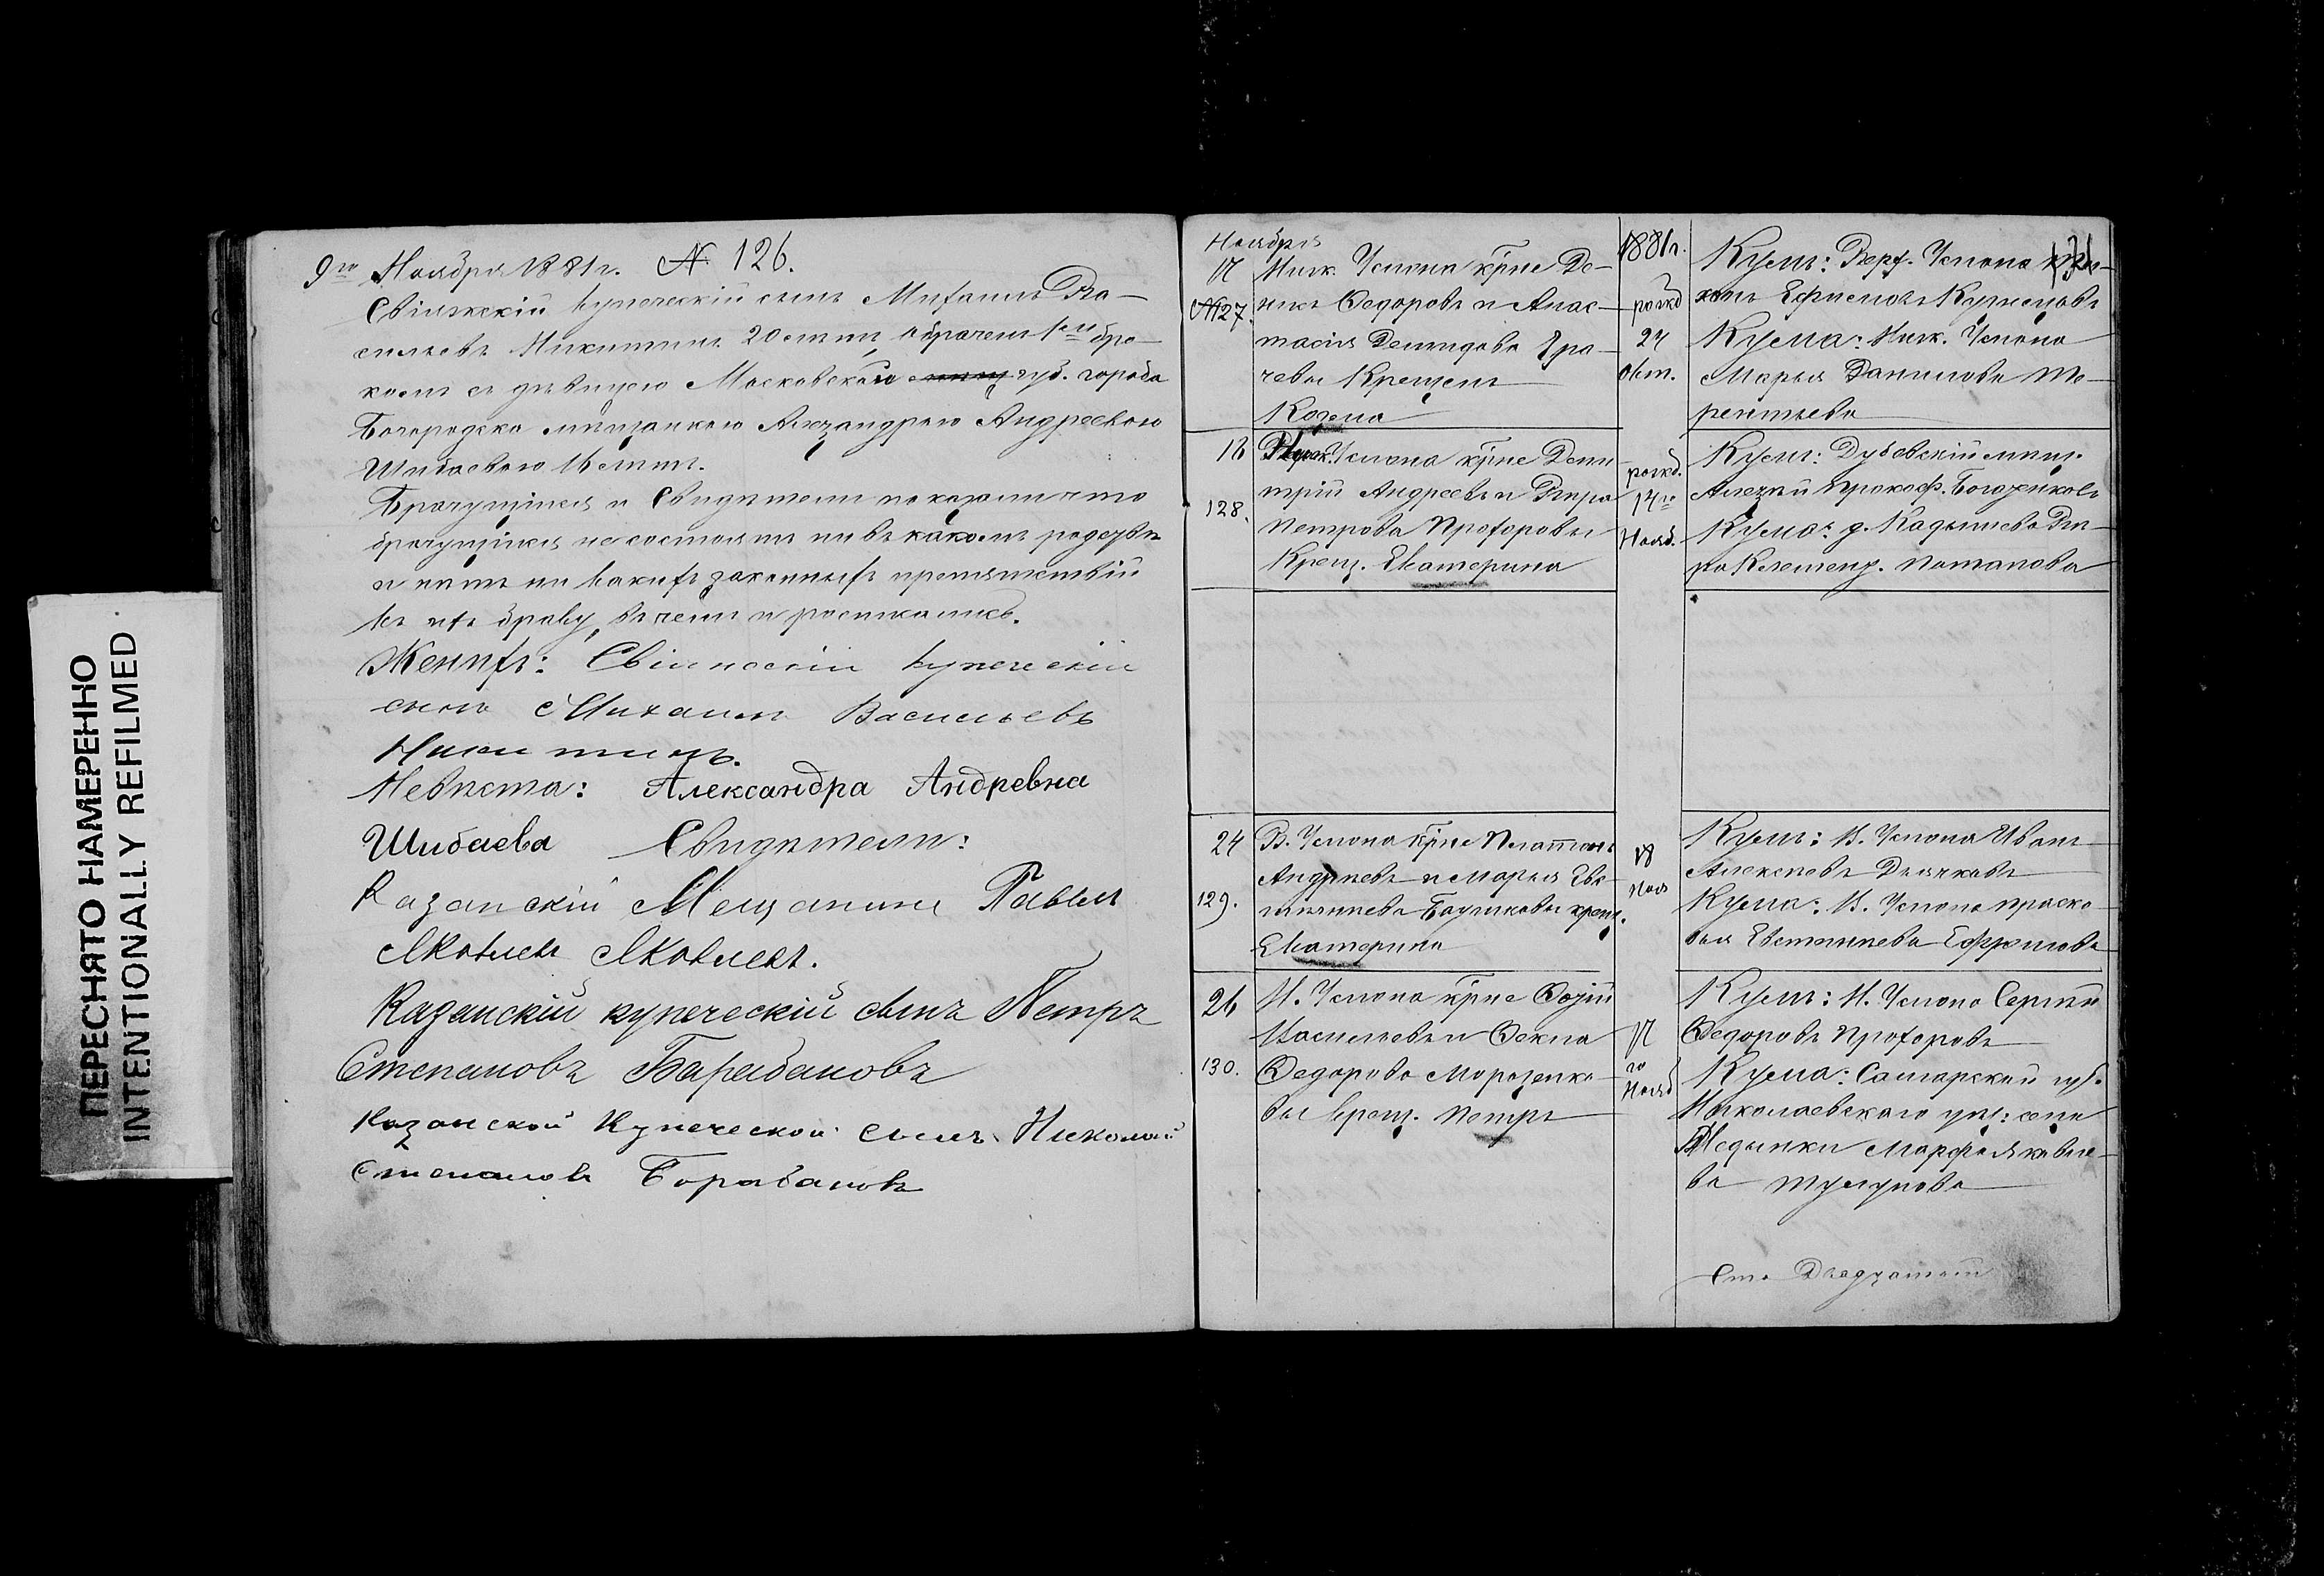 ПЕРЕСНЯТО НАМЕРЕННО
INTENTIONALLY REFILMED
9го Ноября 1881г. № 126.
Свіяжскій купеческій сынъ Михаилъ Ва-
сильевъ Никитинъ 20 лѣтъ, обрачен 1мъ бра-
комъ съ дѣвицею Московской губ. города
Богородска мѣщанкою Александрою Андреевою
Шибаевою 16 лѣтъ.
Брачущіися и Свидѣтели показали что
брачущіися не состоятъ ни въ какомъ родствѣ
и нѣтъ ни какихъ законныхъ препятствій
къ ихъ браку, въ чемъ и росписались.
Женихъ: купеческій
сынъ Михаилъ Васильевъ
Никитинъ.
Невѣста: Александра Андревна
Шибаева Свидѣтели:
Казанскій Мещанинъ Павелъ
Яковлевъ Яковлевъ.
Казанскій купеческій сынъ Петръ
Степановъ Барабановъ
Казанской Купеческой сынъ Николай
Степановъ Борабановъ
Ноября
17 Ниж. Услона кр̄не Де-
№127. Федоровъ и Анас-
тасія Демидова Гра-
чевы Крещенъ
Козма
1881г.
рожд
24
Окт.
Кумъ: Верх. Услона
Ефимовъ Кузнецовъ
Кума: Ниж. Услона
Марья Данилова Те-
рентьева
18 Услона кр̄не Дми
128. трій Андреевъ и Вѣра
Петрова Прохоровы
Крещ. Екатерина
рожд.
14го
Нояб.
Кумъ: Дубовскій мѣщ.
Алексѣй Прокоф.
Кума: д. Кадышева Вѣ-
ра Клемент. Потапова
24 В. Услона кр̄не Платонъ
129. Андреевъ и Марья Евс-
тигнѣева крещ.
Екатерина
18
Ноя
Кумъ: В. Услона Иванъ
Алексѣевъ Дьячковъ
Кума: В. Услона Праско-
вья Евстигнѣева Ефремова
26 Н. Услона кр̄не
130. Васильевъ и Фекла
Федорова Морозенко-
вы крещ. Петръ
17
го
Нояб
Кумъ: Н. Услона Сергѣй
Федоровъ Прохоровъ
Кума: Самарской губ.
Николаевского уѣз: села
Марфа Яковле-
ва
Сто Двадцатый